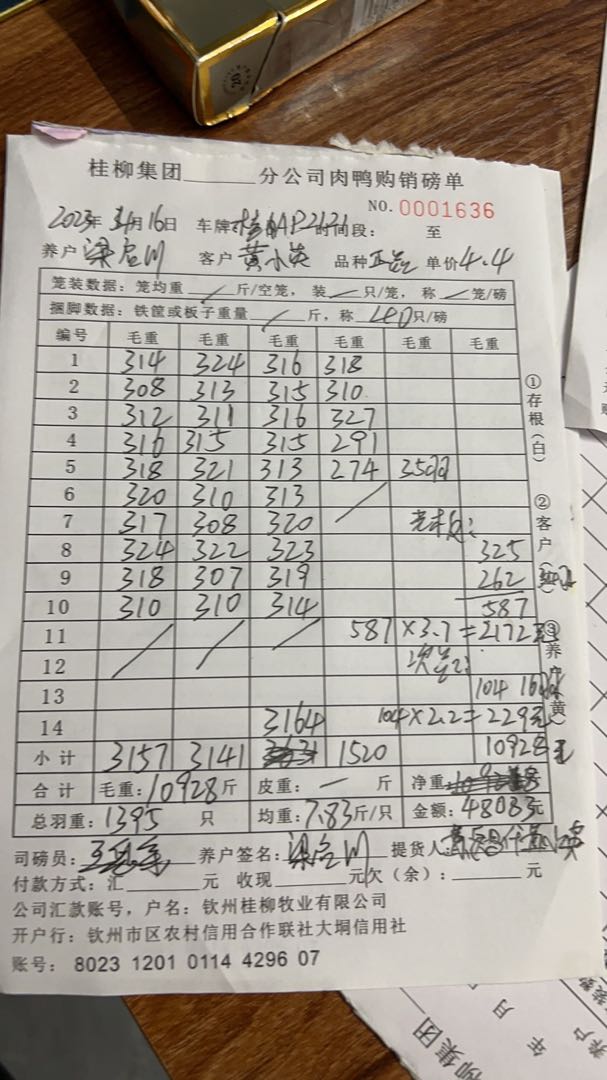 桂柳集团______分公司肉鸭购销磅单
NO. 0001636
2023年 月16日 车牌 AP2121 时间段: 至
养户 梁 川 客户 黄小英 品种 正 单价4.4
笼装数据: 笼均重 / 斤/空笼, 装 / 只/笼, 称 / 笼/磅
捆脚数据: 铁筐或板子重量 / 斤, 称 40 只/磅
编号 毛重 毛重 毛重 毛重 毛重 毛重
1 314 324 316 318
2 308 313 315 310
3 312 311 316 327
4 316 315 315 291
5 318 321 313 274 35只
6 320 310 313 /
7 317 308 320
8 324 322 323 325
9 318 307 319 262
10 310 310 314 587
11 / / / 587×3.7=2172元
12 次
13 104 16只
14 3164 104×2.2=229元
小计 3157 3141 1520 10928元
合计 毛重:10928斤 皮重: — 斤 净重
总羽重: 1395 只 均重: 7.83斤/只 金额: 48083元
司磅员: 养户签名: 梁 川 提货人:
付款方式: 汇______元 收现______元欠(余):______元
公司汇款账号, 户名: 钦州桂柳牧业有限公司
开户行: 钦州市区农村信用合作联社大垌信用社
账号: 8023 1201 0114 4296 07
①存根(白)
②客户( )
③养户(黄)
柳集团
年 月
养户